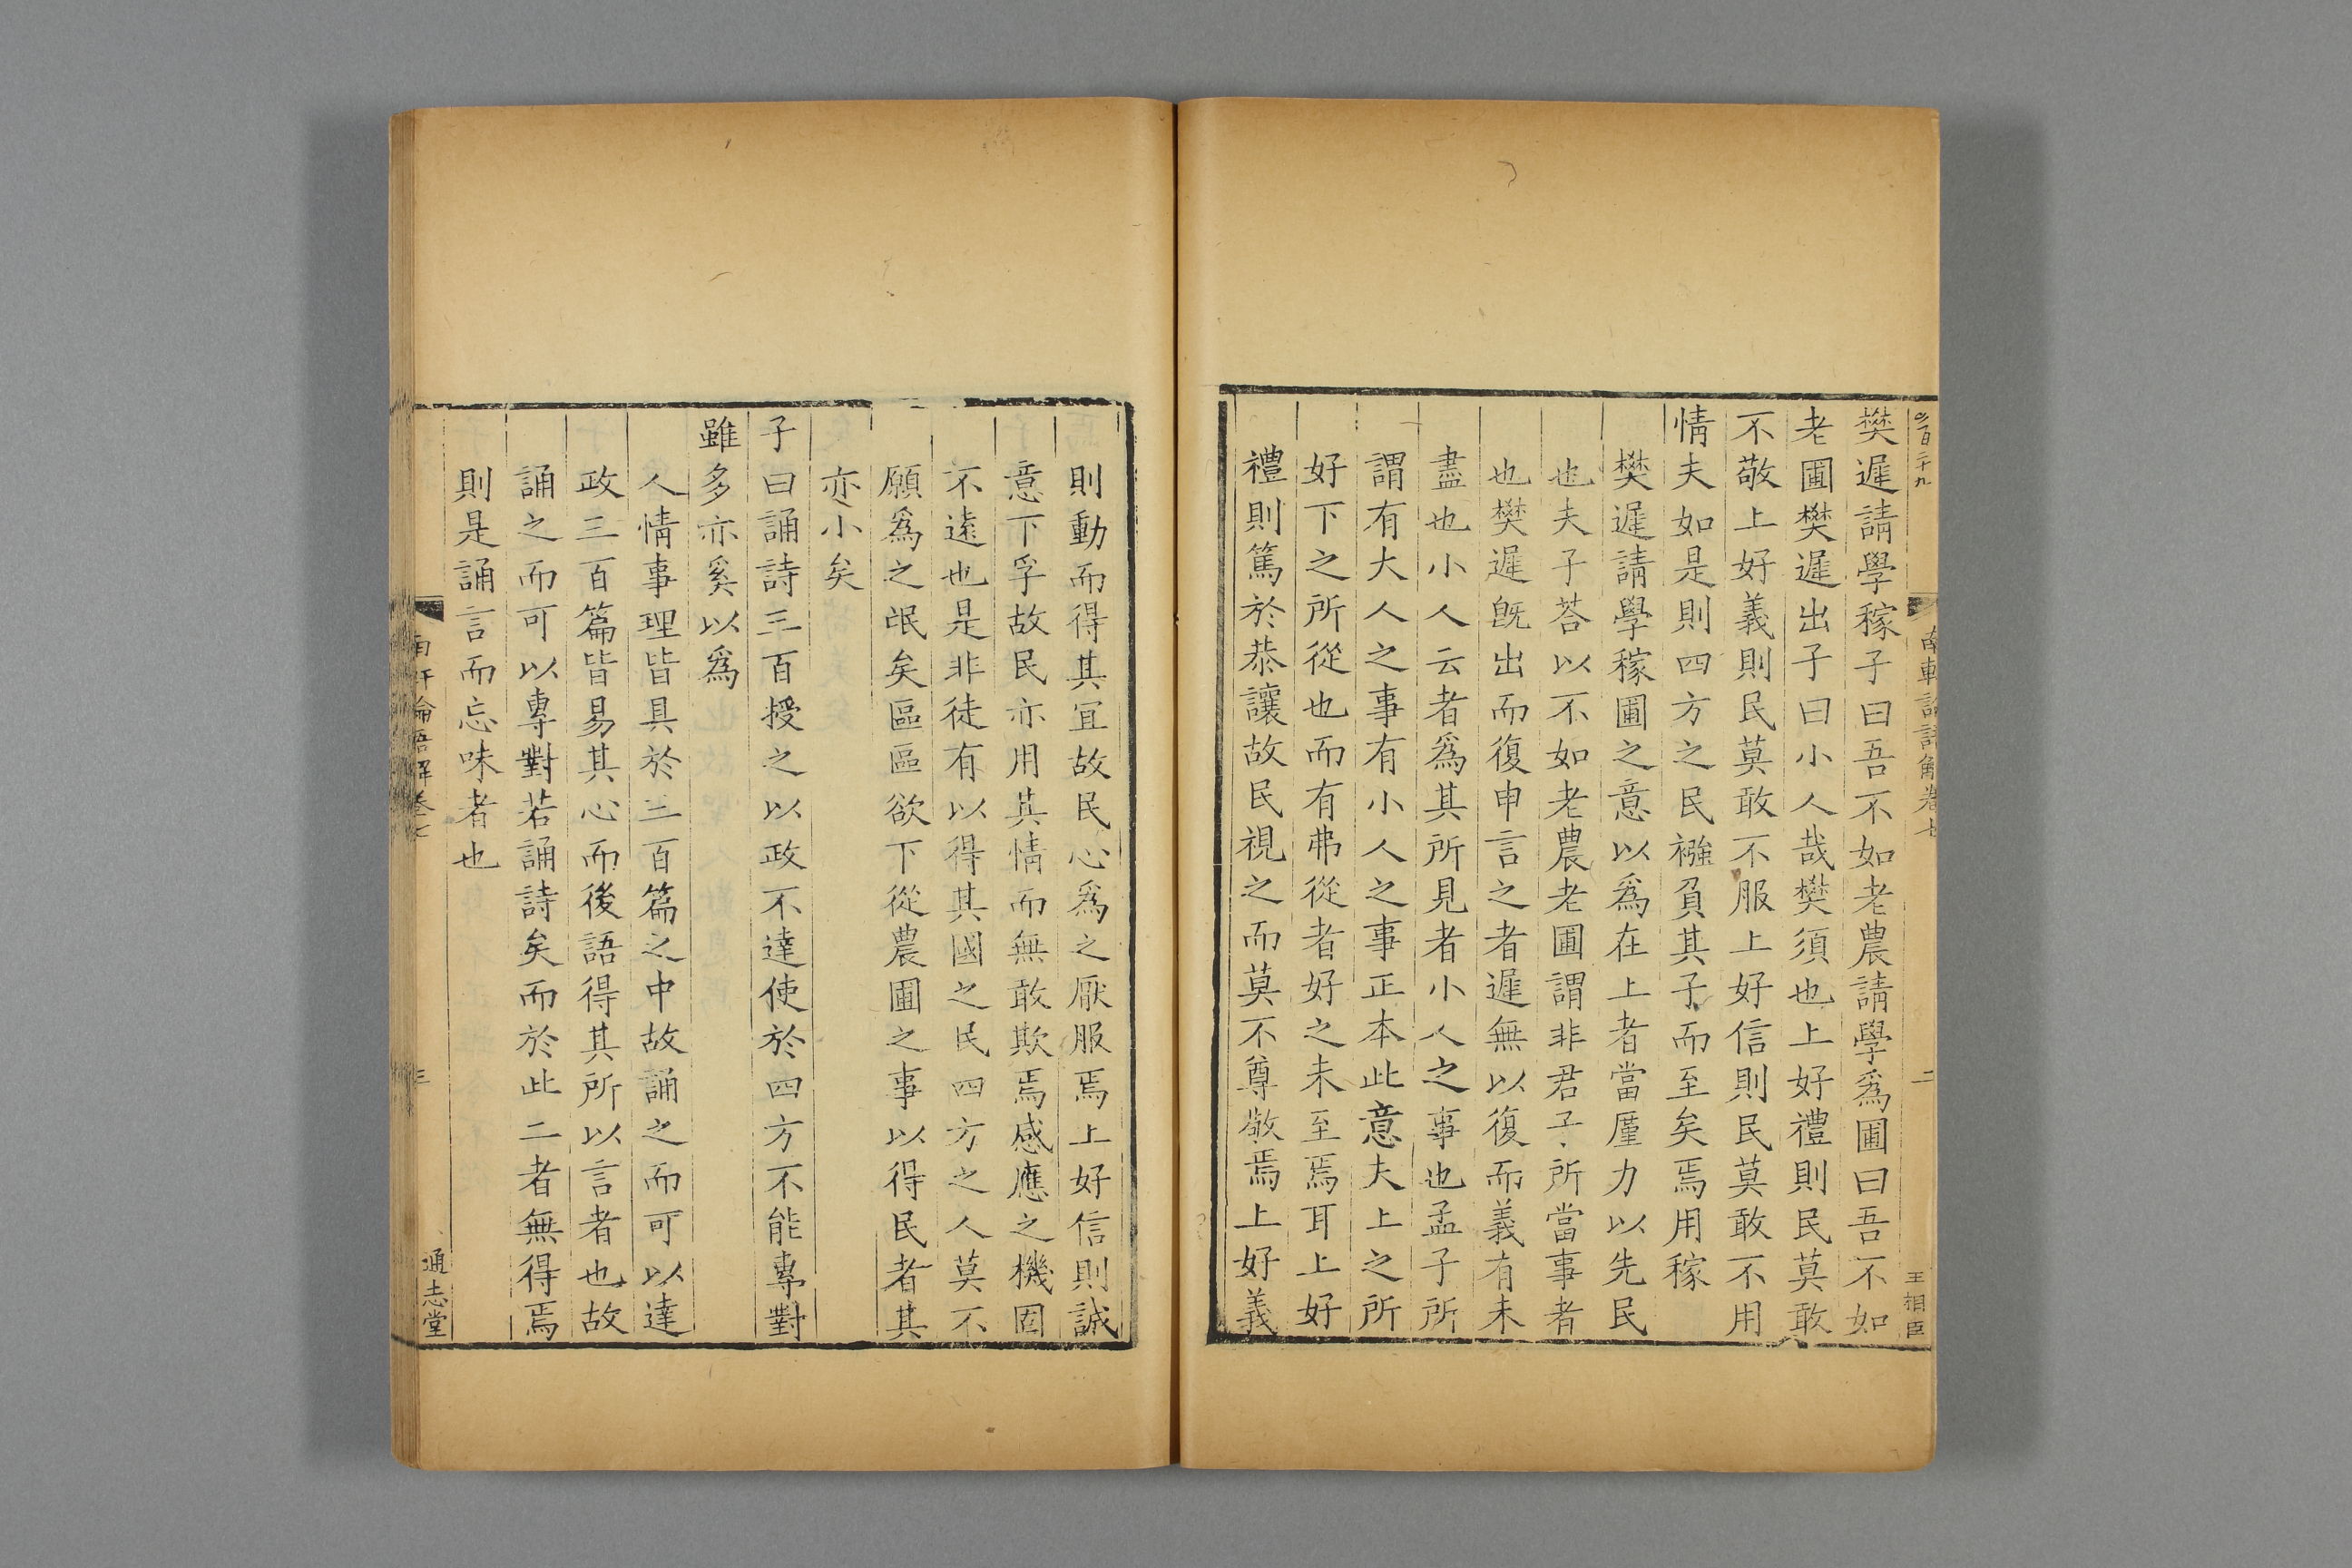 樊遲請學稼子曰吾不如老農請學爲圃曰吾不如
老圃樊遲出子曰小人哉樊須也上好禮則民莫敢
不敬上好義則民莫敢不服上好信則民莫敢不用
情夫如是則四方之民襁負其子而至矣焉用稼
樊遲請學稼圃之意以爲在上者當厪力以先民
也夫子荅以不如老農老圃謂非君子所當事者
也樊遲旣出而復申言之者遲無以復而義有未
盡也小人云者爲其所見者小人之事也孟子所
謂有大人之事有小人之事正本此意夫上之所
好下之所從也而有弗從者好之未至焉耳上好
禮則篤於恭讓故民視之而莫不尊敬焉上好義
二
王相臣
則動而得其宜故民心爲之厭服焉上好信則誠
意下孚故民亦用其情而無敢欺焉感應之機固
不遠也是非徒有以得其國之民四方之人莫不
願爲之氓矣區區欲下從農圃之事以得民者其
亦小矣
子曰誦詩三百授之以政不達使於四方不能專對
雖多亦奚以爲
人情事理皆具於三百篇之中故誦之而可以達
政三百篇皆易其心而後語得其所以言者也故
誦之而可以專對若誦詩矣而於此二者無得焉
則是誦言而忘味者也
南軒論語解卷七
三
通志堂